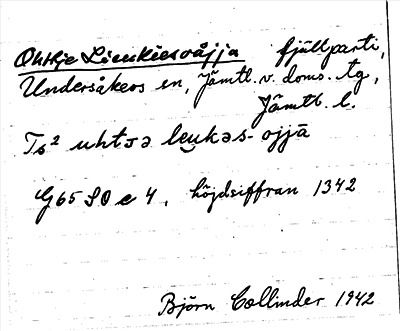 Ohtje Lieukiesoåjja fjällparti,
Undersåkers sn, Jämtl. v. doms. tg,
Jämtl. l.
To² uhtsə leukəs-ojjā
G65 SO e 4, höjdsiffran 1342
Björn Collinder 1942